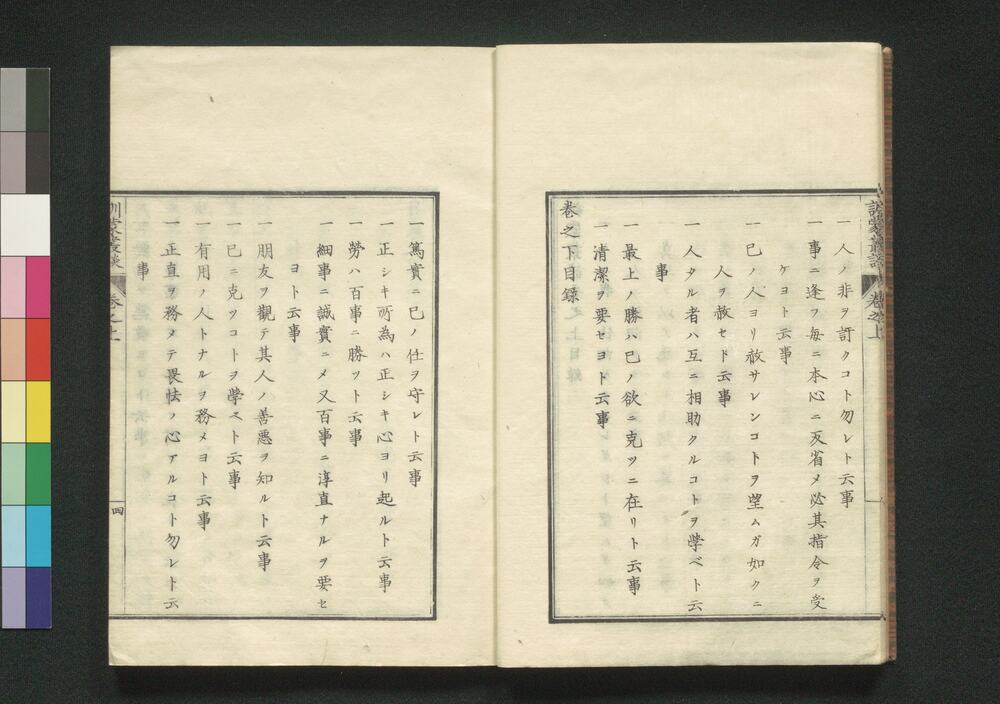 一人ノ非ヲ訐クコト勿レト云事
一事ニ逢フ毎ニ本心ニ反省メ必其指令ヲ受
ケヨト云事
一己ノ人ヨリ赦サレンコトヲ望ムガ如クニ
人ヲ赦セト云事
一人タル者ハ互ニ相助クルコトヲ學ベト云
事
一最上ノ勝ハ己ノ欲ニ克ツニ在リト云事
一清潔ヲ要セヨト云事
卷之下目錄
一篤實ニ己ノ仕ヲ守レト云事
一正シキ所為ハ正シキ心ヨリ起ルト云事
一勞ハ百事ニ勝ツト云事
一細事ニ誠實ニメ又百事ニ淳直ナルヲ要セ
ヨト云事
一朋友ヲ觀テ其人ノ善惡ヲ知ルト云事
一己ニ克ツコトヲ學ベト云事
一有用ノ人トナルヲ務メヨト云事
一正直ヲ務メテ畏怯ノ心アルコト勿レト云
事
訓蒙叢談
卷之上
四